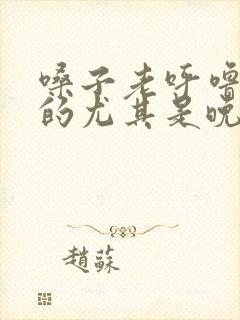 嗓子老呼噜
的尤其是晚
趙蘇